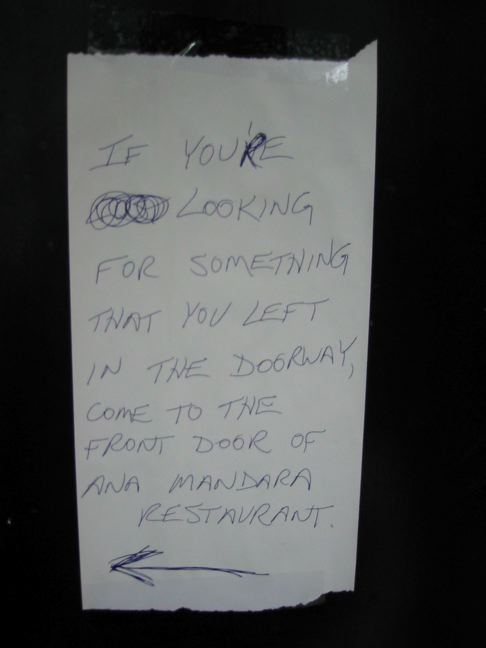 IF YOU'RE
LOOKING
FOR SOMETHING
THAT YOU LEFT
IN THE DOORWAY,
COME TO THE
FRONT DOOR OF
ANA MANDARA
RESTAURANT.